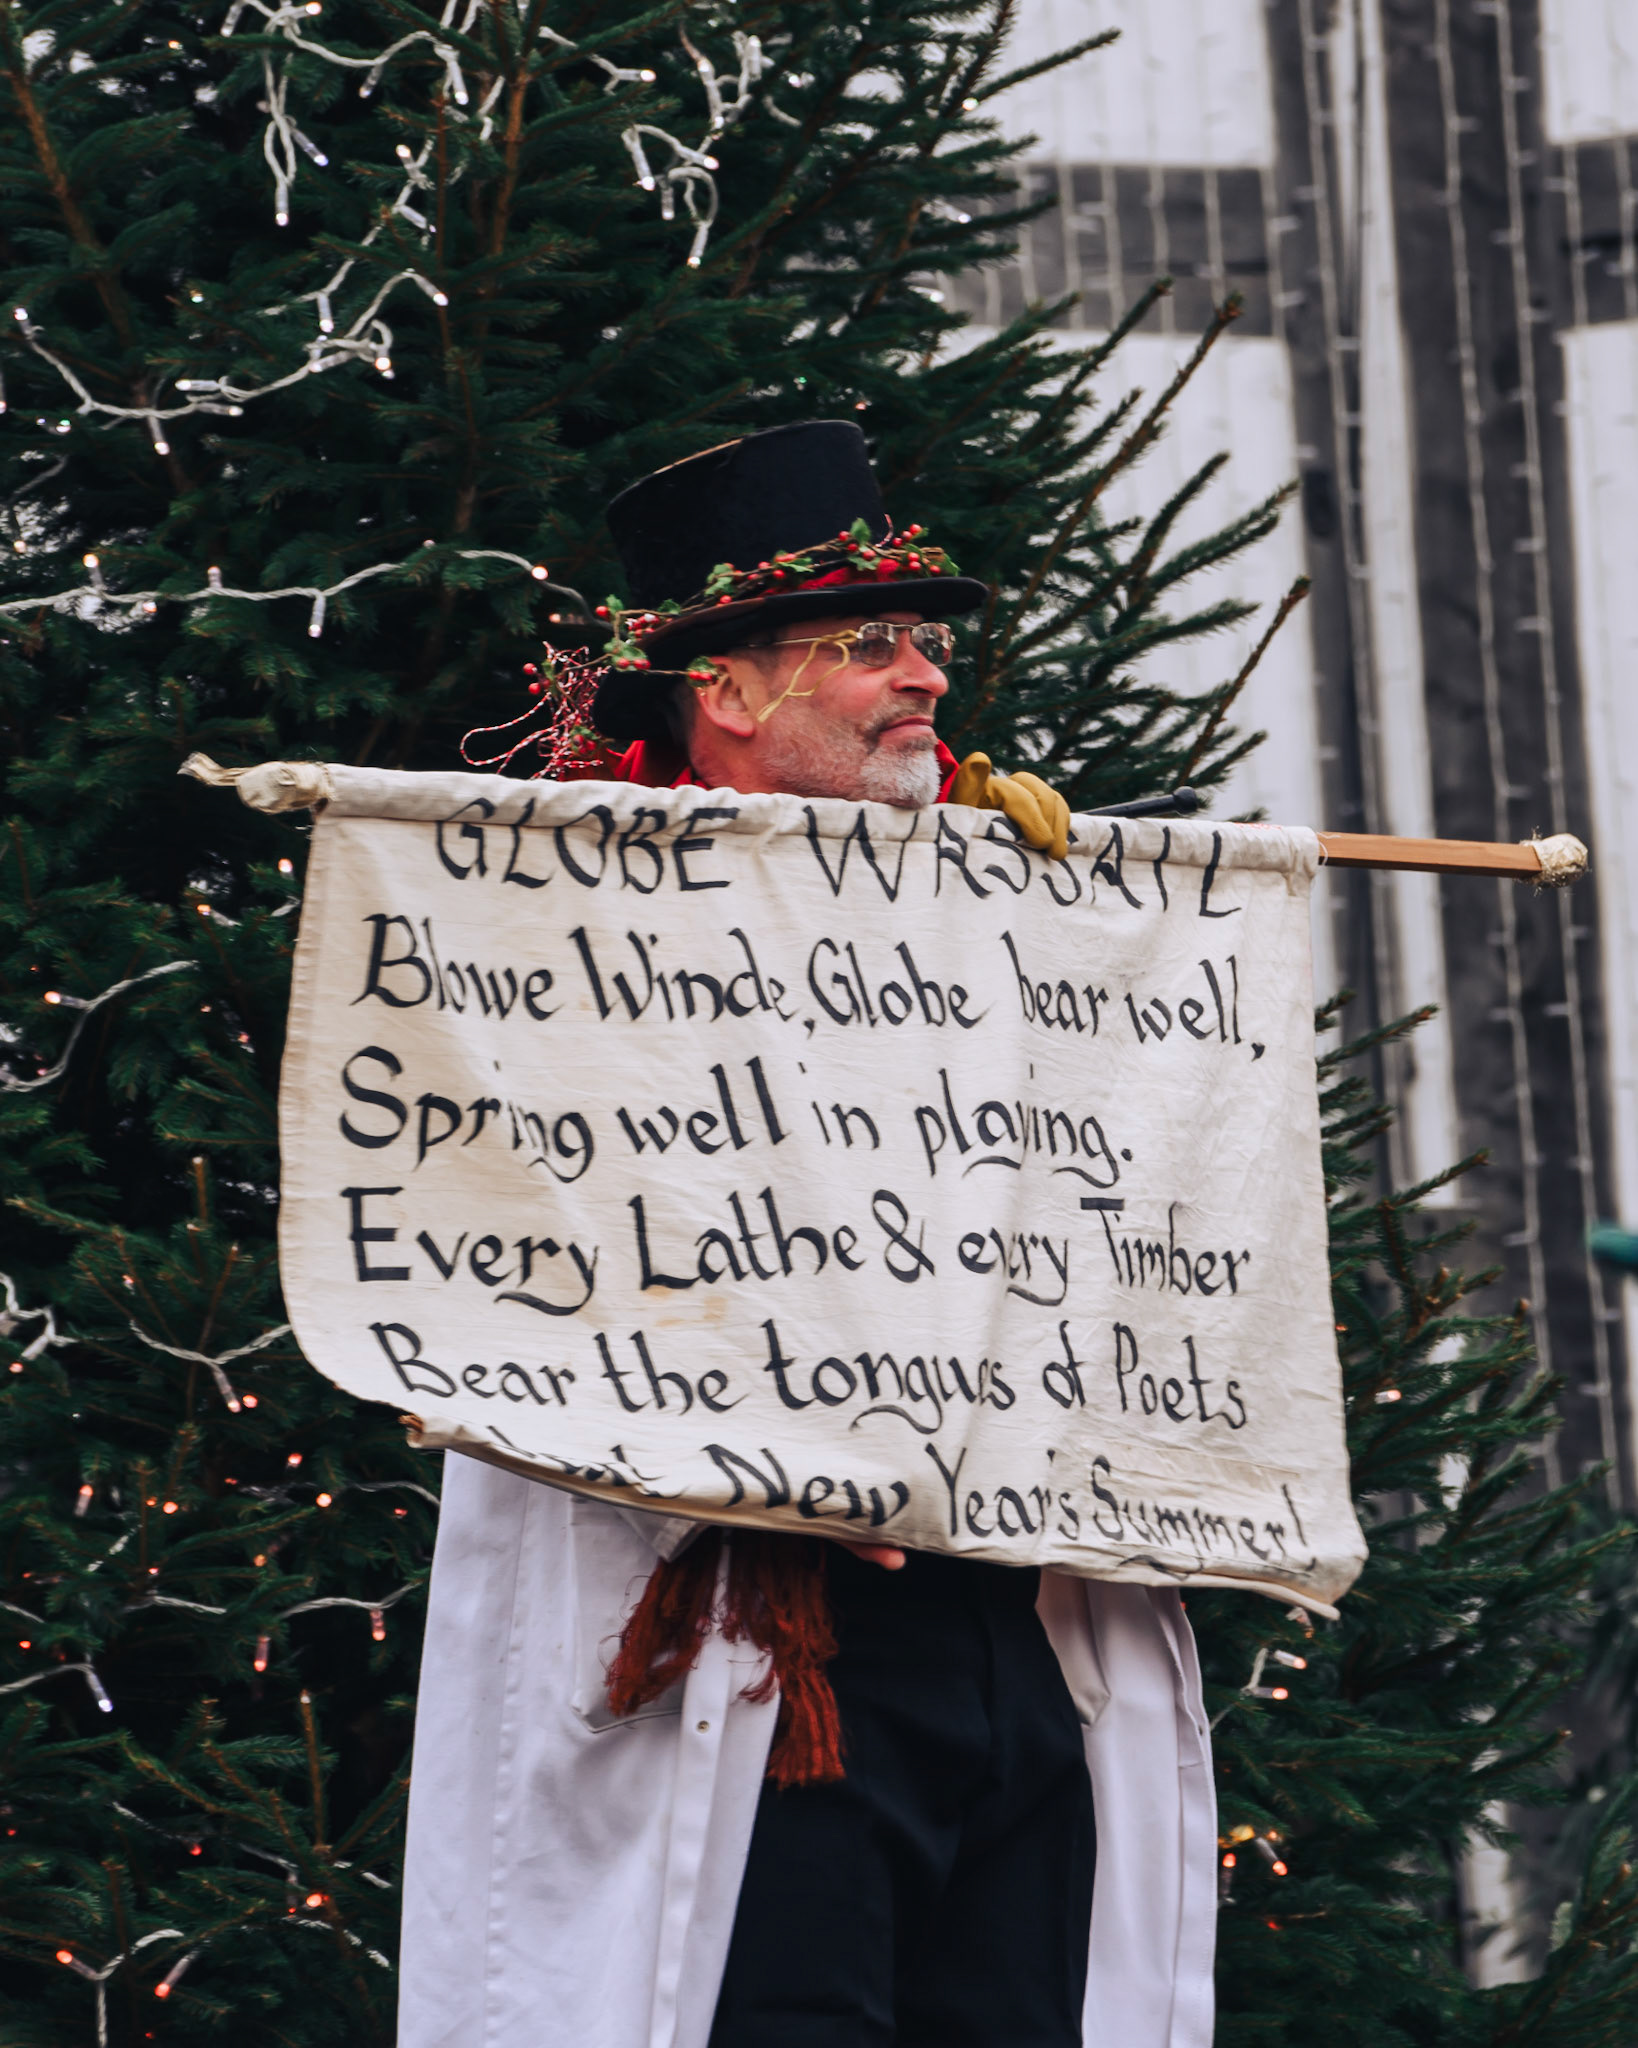 GLOBE WASSAIL
Blowe Winde, Globe bear well,
Spring well in playing.
Every Lathe & every Timber
Bear the tongues of Poets
New Year's Summer!